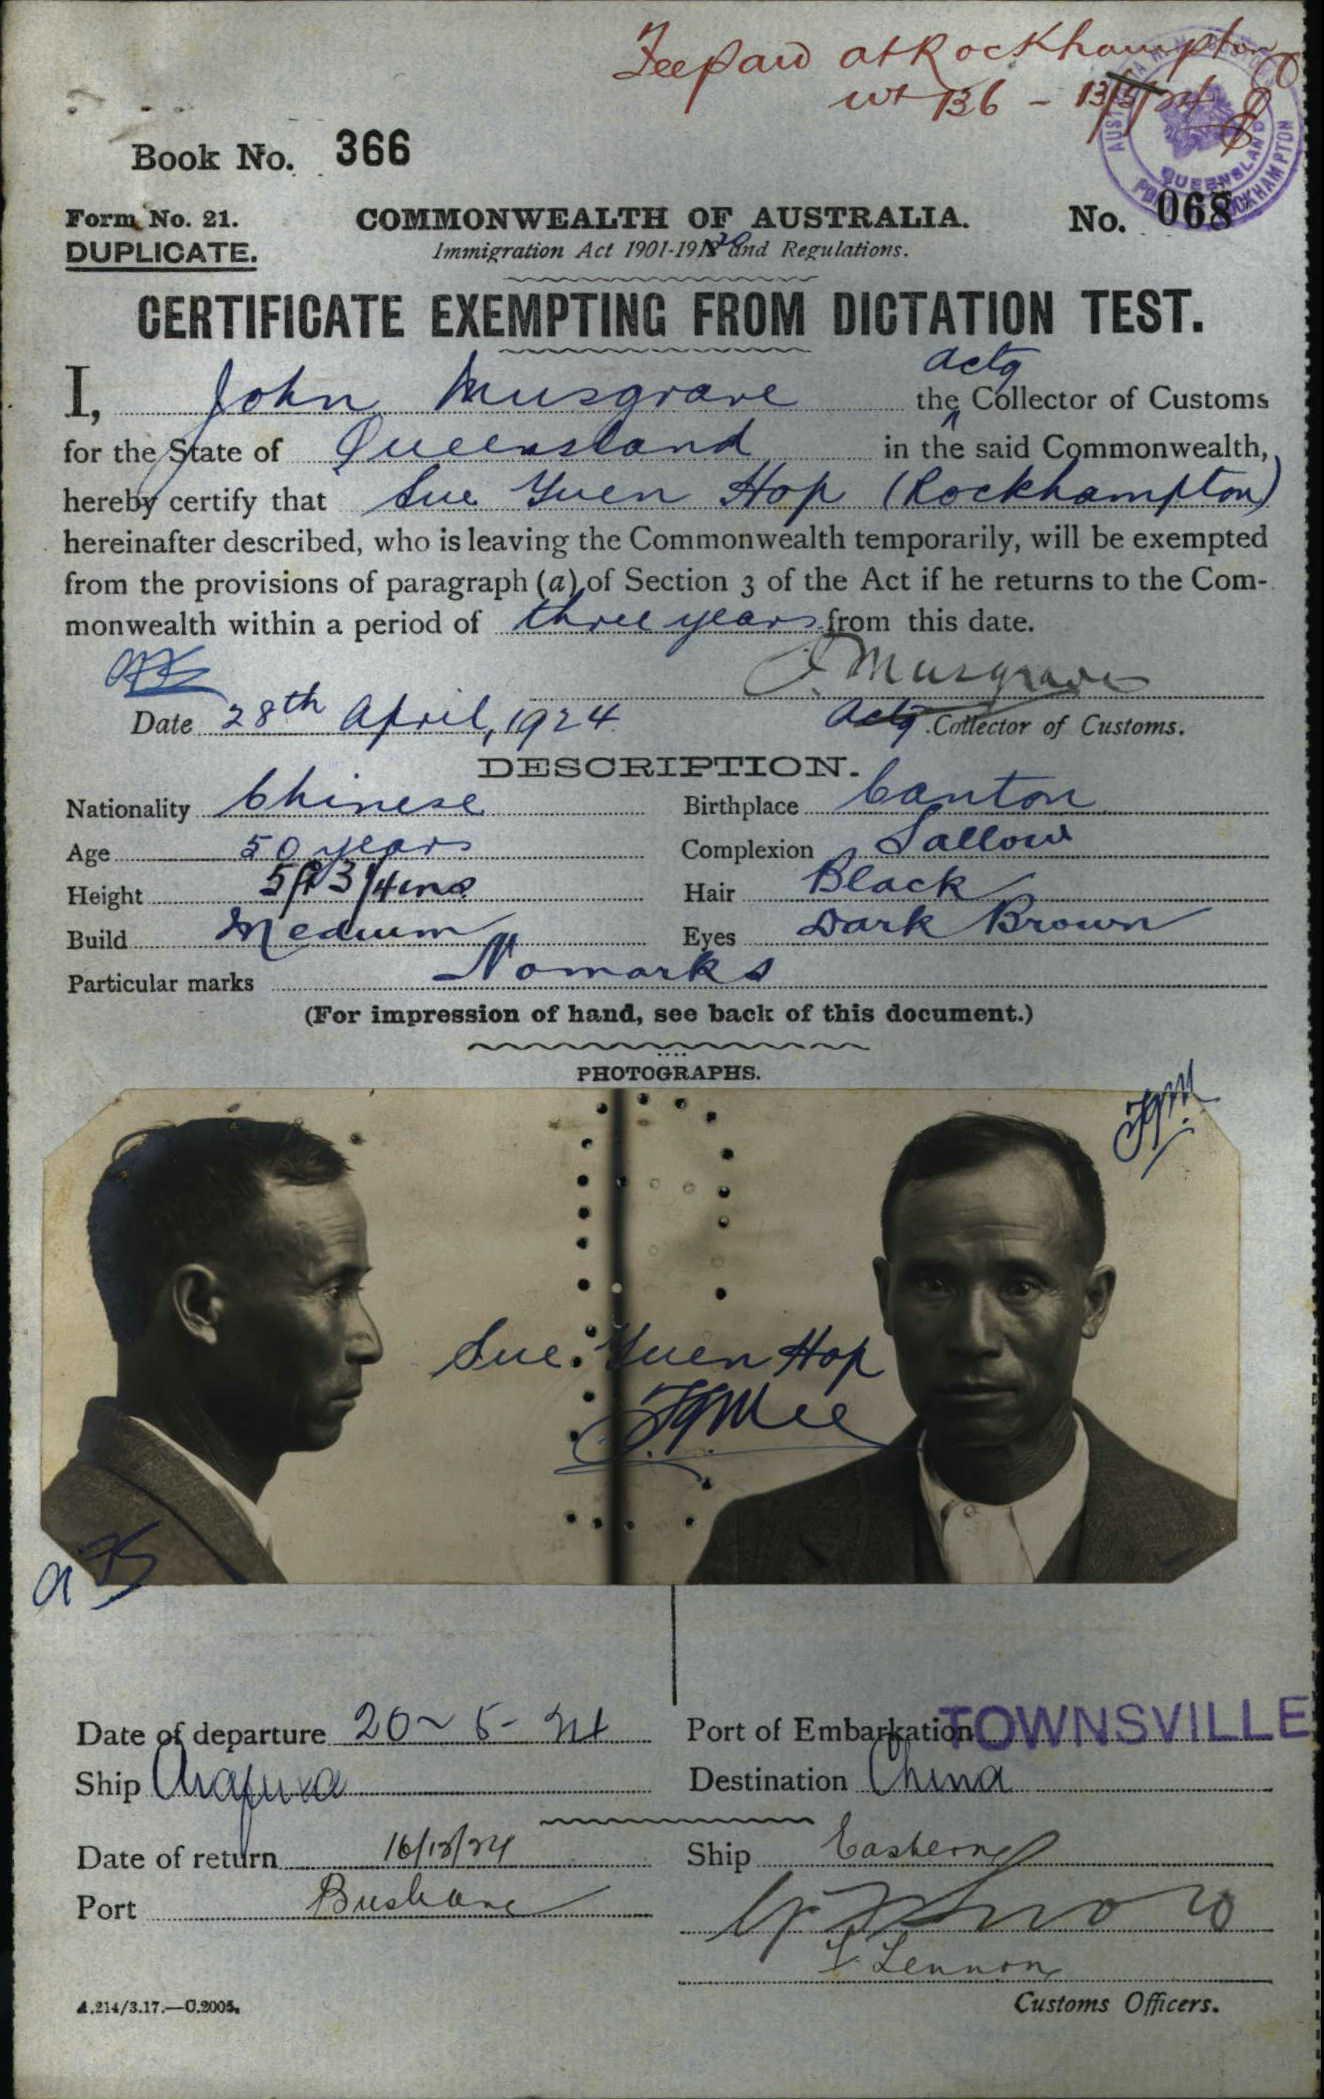 Fee paid at Rockhampton
136 - 13/5/24
AUSTRALIA
QUEENSLAND
ROCKHAMPTON
Book No. 366
Form No. 21. COMMONWEALTH OF AUSTRALIA. No. 068
DUPLICATE. Immigration Act 1901-1920 and Regulations.
CERTIFICATE EXEMPTING FROM DICTATION TEST.
actg
I, John Musgrave the Collector of Customs
for the State of Queensland in the said Commonwealth,
hereby certify that Sue Yuen Hop (Rockhampton)
hereinafter described, who is leaving the Commonwealth temporarily, will be exempted
from the provisions of paragraph (a) of Section 3 of the Act if he returns to the Com-
monwealth within a period of three years from this date.
J. Musgrave
Date 28th April, 1924 Actg Collector of Customs.
DESCRIPTION.
Nationality Chinese Birthplace Canton
Age 50 years Complexion Sallow
Height 5ft 3 1/4 ins Hair Black
Build Medium Eyes Dark Brown
Particular marks No marks
(For impression of hand, see back of this document.)
PHOTOGRAPHS.
Sue Yuen Hop
Date of departure 20-5-24 Port of Embarkation TOWNSVILLE
Ship Arafura Destination China
Date of return 16/12/24 Ship Eastern
Port Brisbane
Lennon
A.214/3.17.—C.2005. Customs Officers.